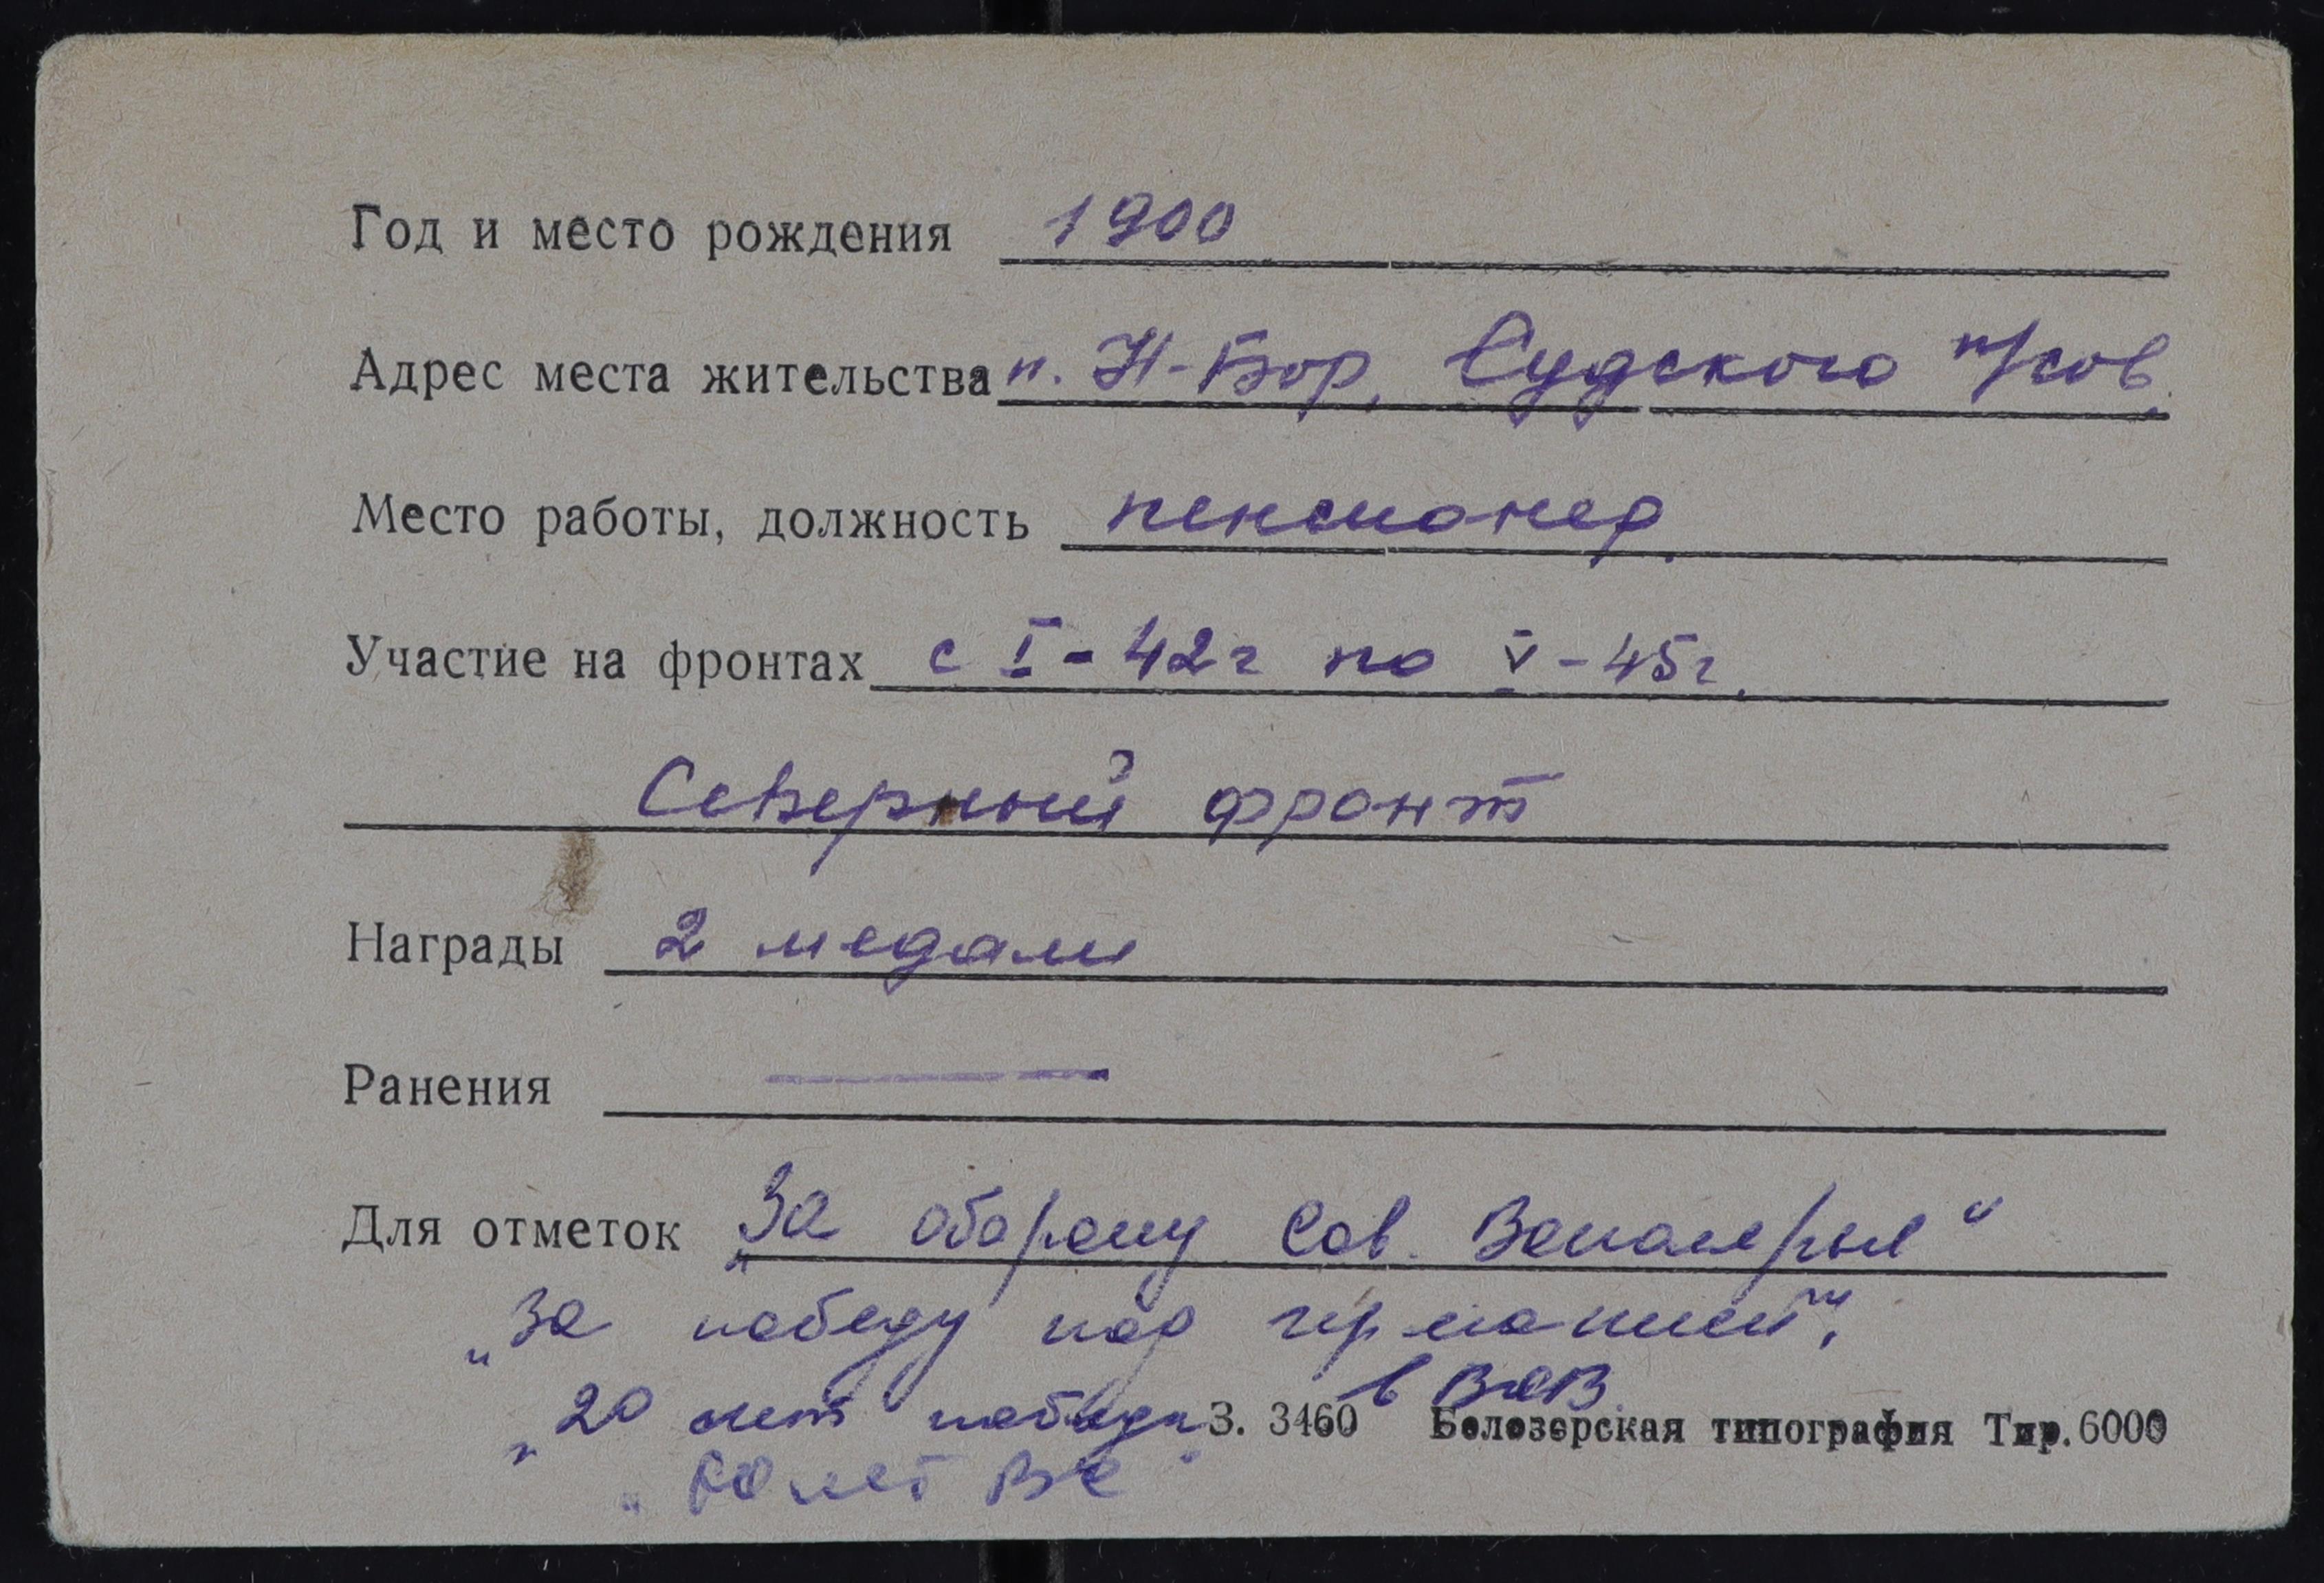 Год и место рождения 1900
Адрес места жительства п. Н-Бор, Судского п/сов.
Место работы, должность пенсионер.
Участие на фронтах с I-42г по V-45г.
Северный фронт
Награды 2 медали
Ранения —
Для отметок „За оборону Сов. Заполярья“
„За победу над германией“,
„20 лет победы в ВОВ.
З. 3460 Белозерская типография Тир. 6000
„50 лет ВС“